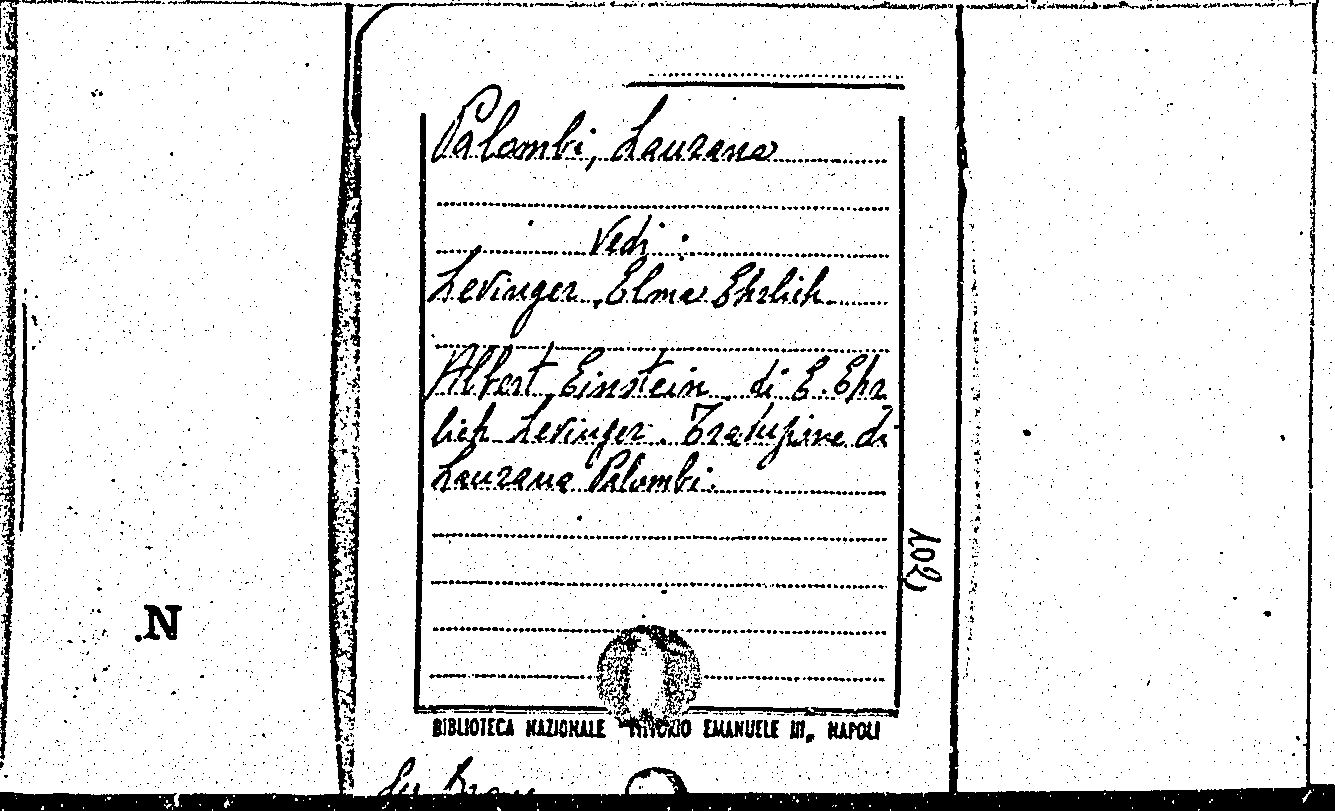 Palombi, Laurana
Vedi:
Levinger Elma Ehrlich
Albert Einstein di E. Ehr
lich Levinger. Traduzione di
Laurana Palombi.
102
.N
BIBLIOTECA NAZIONALE VITTORIO EMANUELE III, NAPOLI